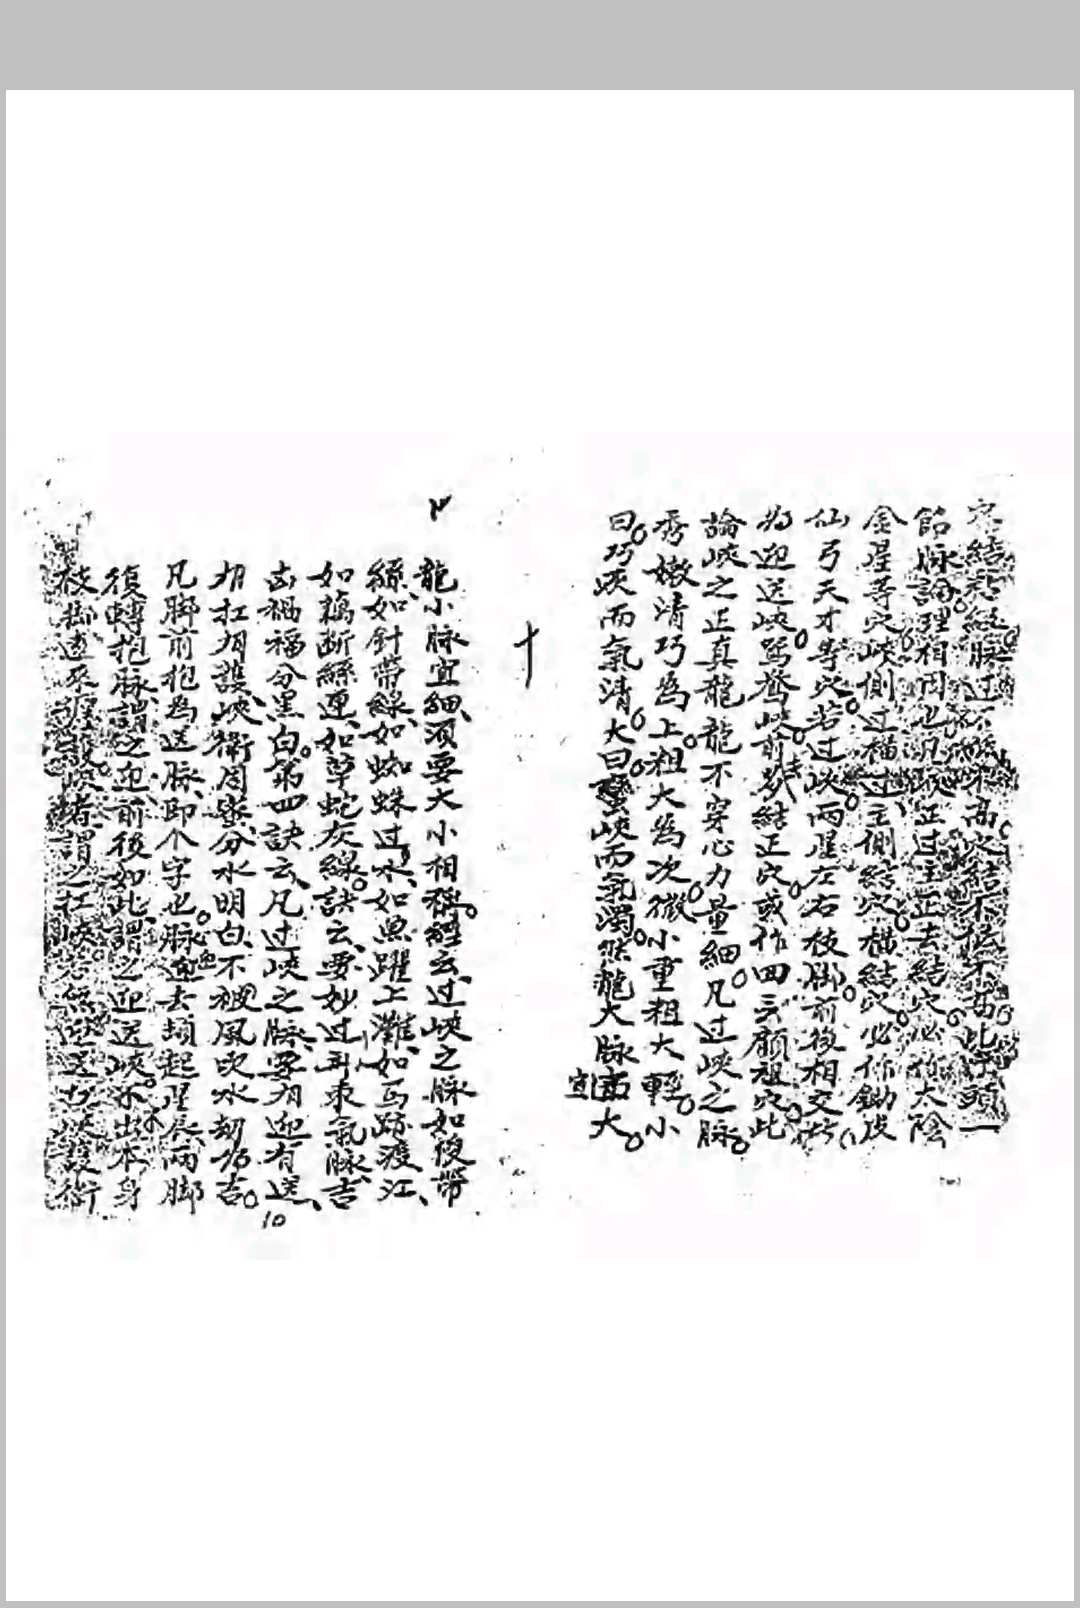 穴結粘緩脉過不 高穴結不低不高此穴頭一
節脉論理相同也凡 正过主正去結穴必作太陰
金星等穴峽側过橫过主側結穴橫結穴必作鋤皮
仙弓天才等穴若过峽两星左右枝脚前後相交
為迎送峽 峽前 結正穴或作回 顧祖穴此
論峽之正真龍龍不穿心力量細凡过峽之脉
秀嫩清巧為上粗大為次微小重粗大輕小
曰巧峽而氣清大曰蠻峽而氣濁然龍大脉宜大
龍小脉宜細須要大小相稱經云过峽之脉如後帶
絲如針帶線如蜘蛛过水如魚躍上灘如馬跡渡江
如藕断絲連如草蛇灰線訣云要妙过 来氣脉吉
凶禍福分黑白第四訣云凡过峽之脉要有迎有送
有扛有護峽衛周密分水明白不被風吹水劫為吉
凡脚前抱為送脉即个字也脉 去頓起星辰两脚
復轉抱脉謂之迎前後如此謂之迎送峽 出本身
枝脚 護峽者謂之扛峽若無迎送扛峽護衛
10